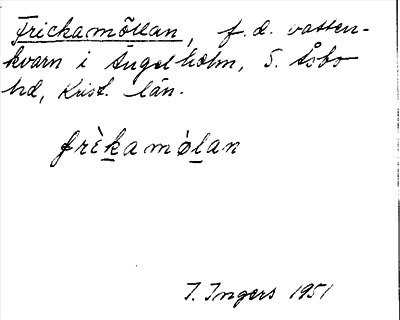 Frickamöllan, f.d. vatten-
kvarn i Ängelholm, S. Åsbo
hd, Krist. län.
frèkamølan
I. Ingers 1951